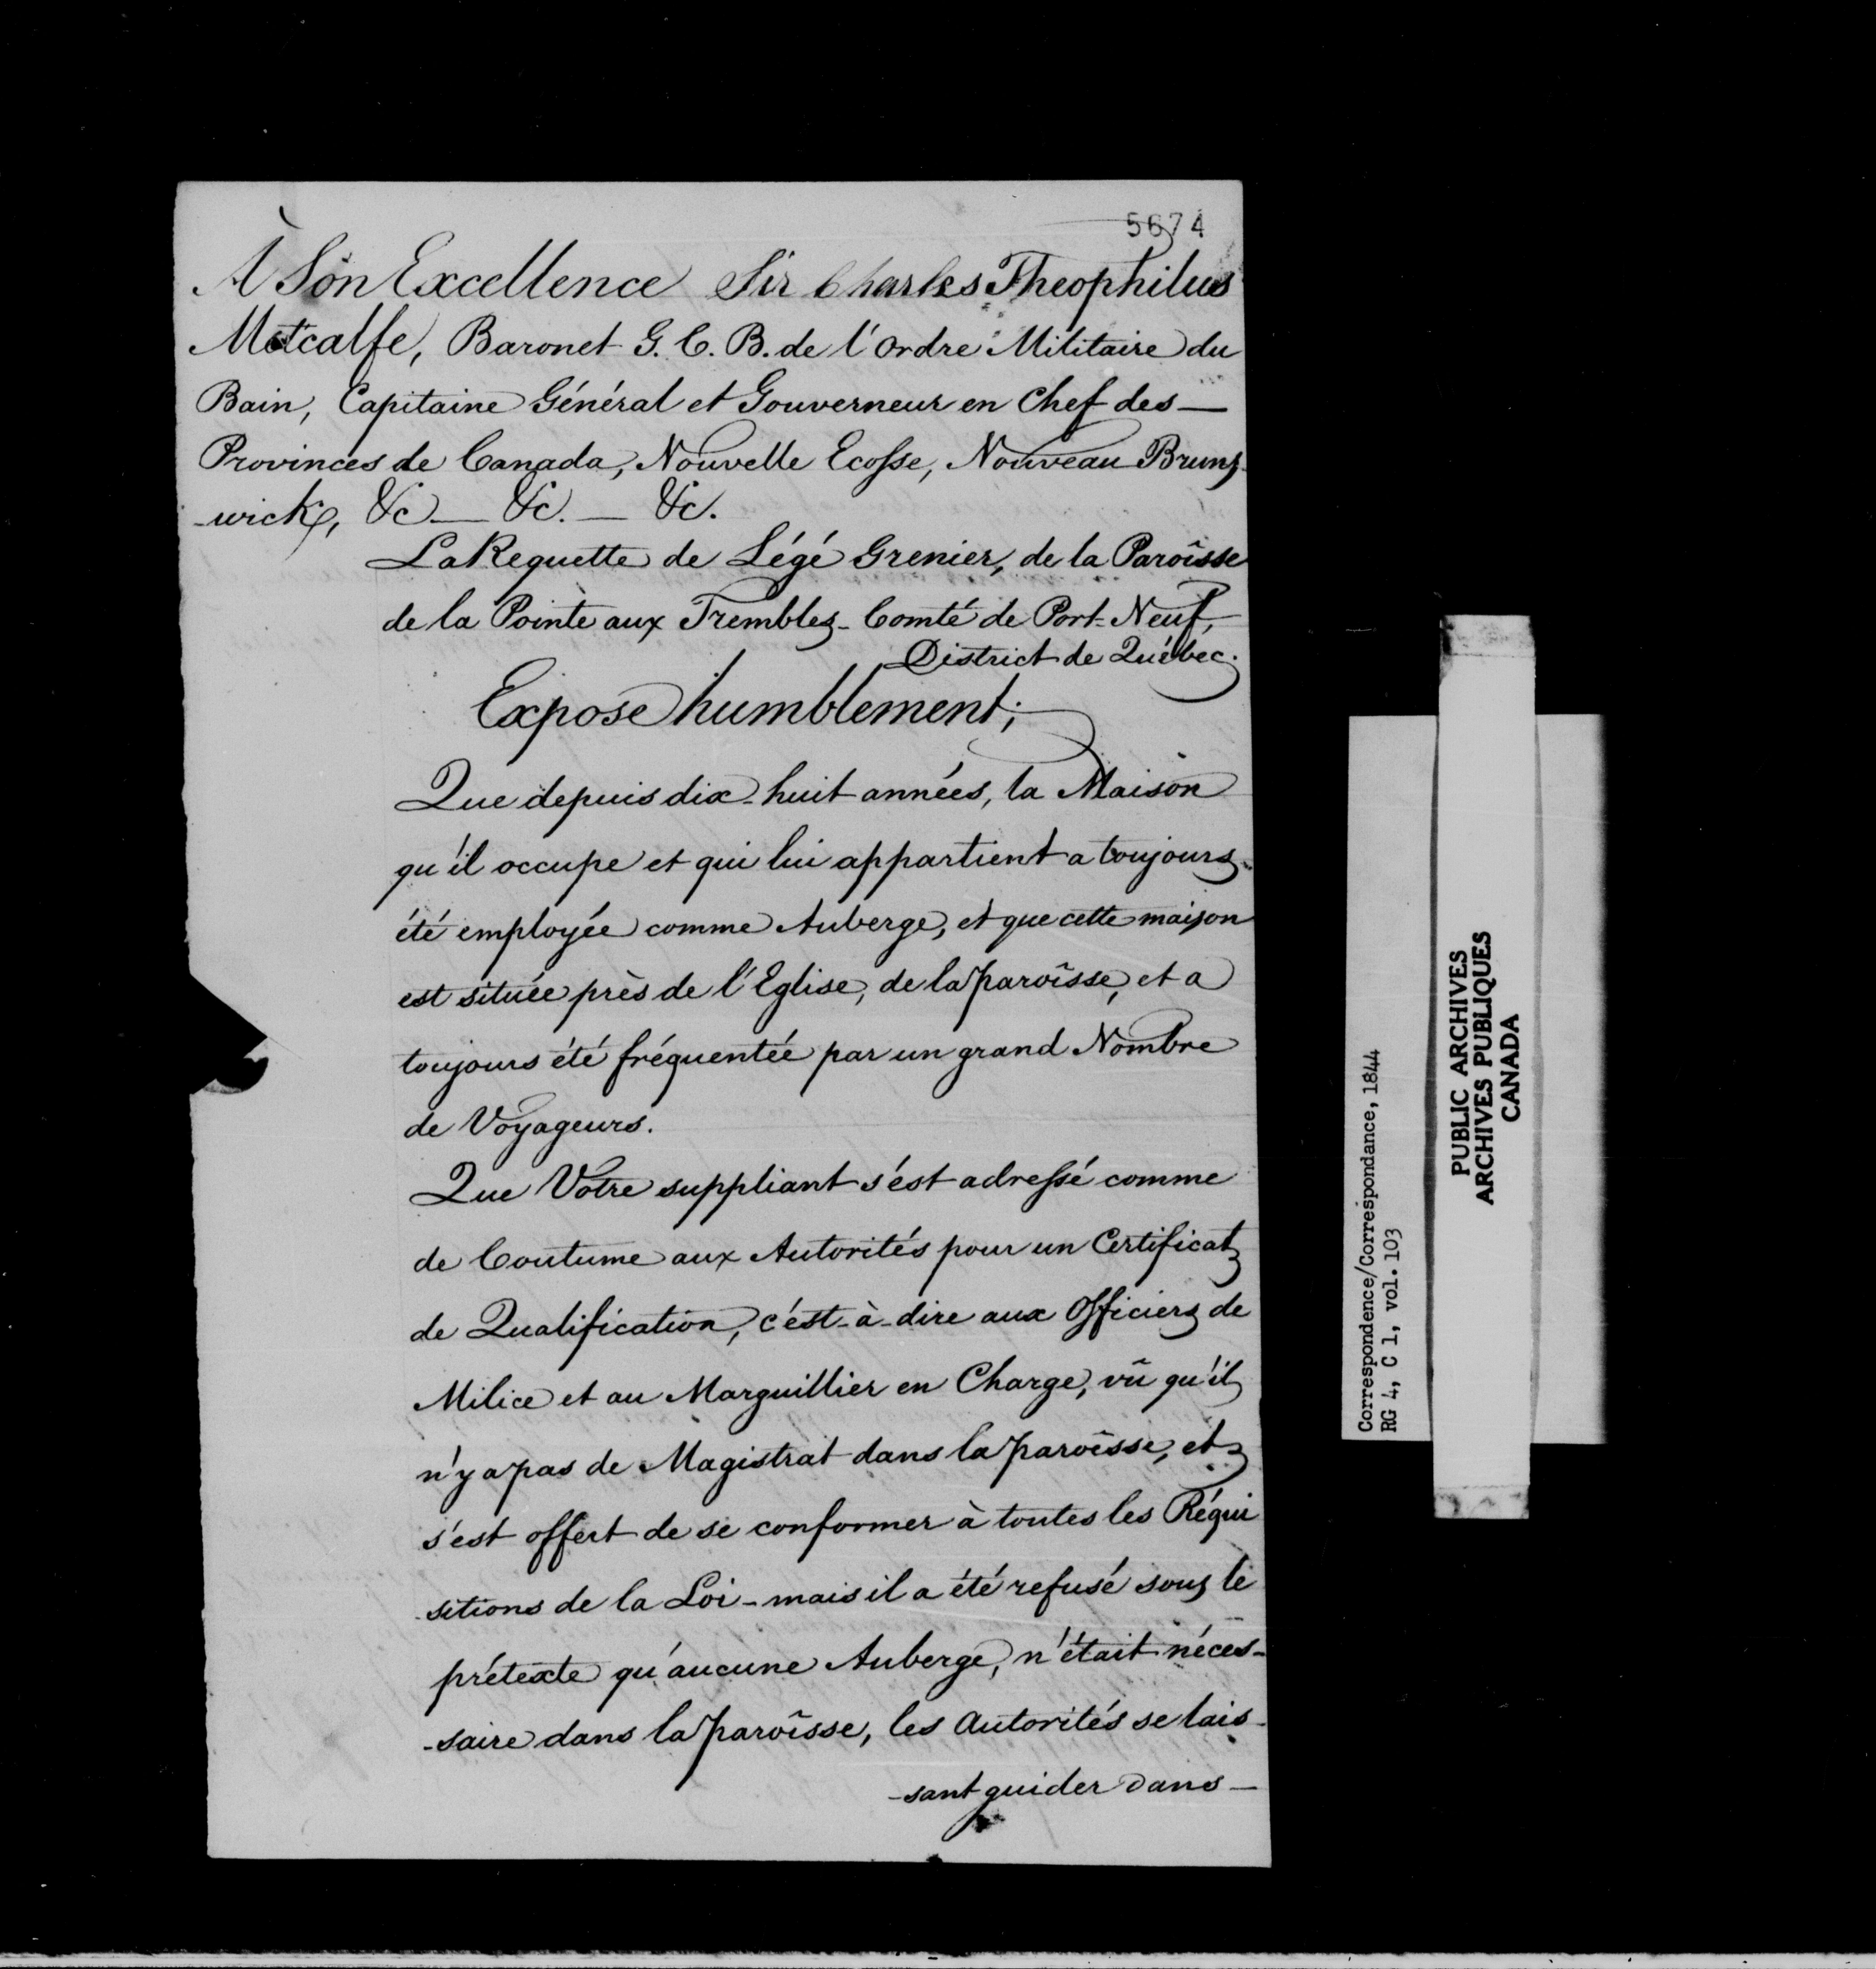 5674
À Son Excellence Sir Charles Theophilus
Metcalfe, Baronet G. C. B. de l'Ordre Militaire du
Bain, Capitaine Général et Gouverneur en Chef des —
Provinces de Canada, Nouvelle Ecosse, Nouveau Bruns-
-wick, &c — &c. — &c.
La Requette de Légé Grenier, de la Paroîsse
de la Pointe aux Trembles - Comté de Port-Neuf,
District de Québec.
Expose humblement;
Que depuis dix-huit années, la Maison
qu'il occupe et qui lui appartient a toujours
été employée comme Auberge, et que cette maison
est située près de l'Eglise, de la paroîsse, et a
toujours été fréquentée par un grand Nombre
de Voyageurs.
Que Votre suppliant s'est adressé comme
de Coutume aux Autorités pour un Certificat
de Qualification, c'est-à-dire aux Officiers de
Milice et au Marguillier en Charge, vû qu'il
n'y a pas de Magistrat dans la paroîsse, et
s'est offert de se conformer à toutes les Réqui
-sitions de la Loi - mais il a été refusé sous le
prétexte qu'aucune Auberge, n'était néces-
-saire dans la paroîsse, les Autorités se lais-
-sant guider dans —
Correspondence/Correspondance, 1844
RG 4, C 1, vol. 103
PUBLIC ARCHIVES
ARCHIVES PUBLIQUES
CANADA